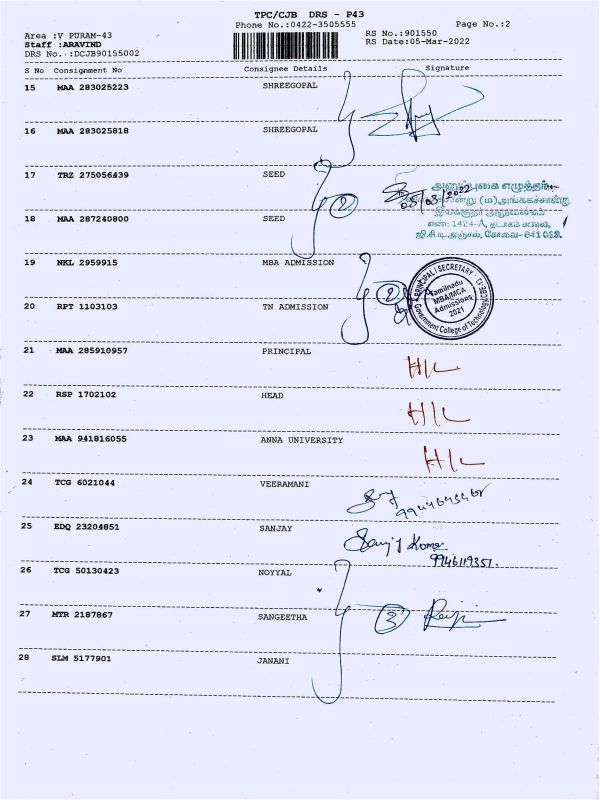 TPC/CJB DRS - P43
Phone No.:0422-3505555
Page No.:2
Area :V PURAM-43
RS No.:901550
Staff :ARAVIND
RS Date:05-Mar-2022
DRS No. :DCJB90155002
S No Consignment No Consignee Details Signature
15 MAA 283025223 SHREEGOPAL
16 MAA 283025818 SHREEGOPAL
17 TRZ 275056439 SEED
2
05/03/2022
18 MAA 287240800 SEED
எண்: 1424-A, தடாகம் சாலை,
ஜி.சி.டி.அஞ்சல், கோவை- 641 013.
19 NKL 2959915 MBA ADMISSION
2
PRINCIPAL / SECRETARY
Tamilnadu
MBA/MCA
Admissions
2021
Government College of Technology
20 RPT 1103103 TN ADMISSION
21 MAA 285910957 PRINCIPAL
H/L
22 RSP 1702102 HEAD
H/L
23 MAA 941816055 ANNA UNIVERSITY
H/L
24 TCG 6021044 VEERAMANI
25 EDQ 23204851 SANJAY
Sanj J Kumar
9946119351.
26 TCG 50130423 NOYYAL
27 MTR 2187867 SANGEETHA
3
28 SLM 5177901 JANANI